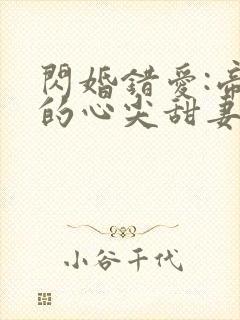 閃婚錯愛:帝
的心尖甜妻
小谷千代